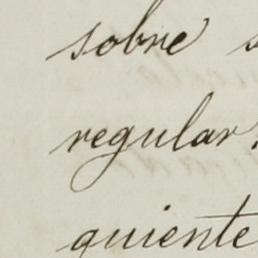 sobre
regular
quiente